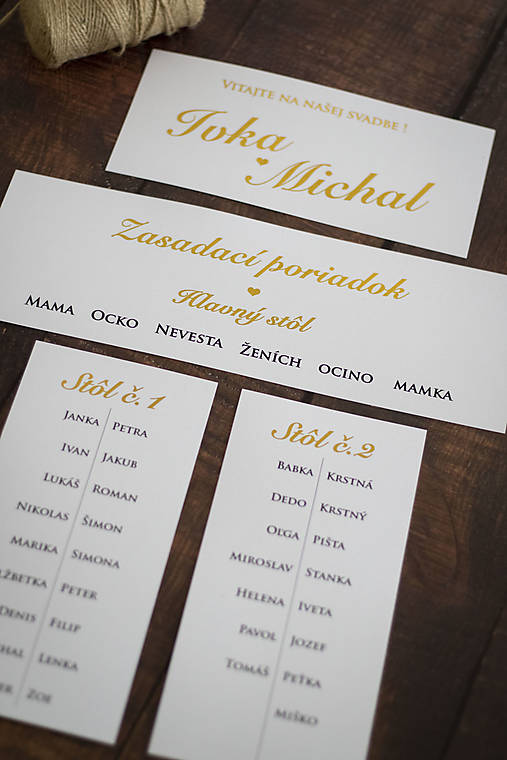 Vitajte na našej svadbe !
Ivka
Michal
Zasadací poriadok
Hlavný stôl
Mama Ocko Nevesta Ženích ocino mamka
Stôl č.1
Janka Petra
Ivan Jakub
Lukáš Roman
Nikolas Šimon
Marika Simona
Peter
Denis Filip
Lenka
Zoe
Stôl č.2
Babka Krstná
Dedo Krstný
Oľga Pišta
Miroslav Stanka
Helena Iveta
Pavol Jozef
Tomáš Peťka
Miško